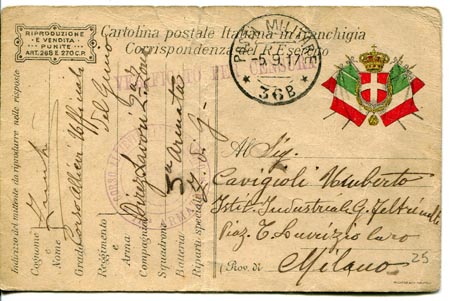 RIPRODUZIONE
E VENDITA
PUNITE
ART. 268 E 270 C.P.
Cartolina postale Italiana in franchigia
Corrispondenza del R. Esercito
POSTA MILITARE
-5.9.17
36B
VERIFICATO PER CENSURA
Indirizzo del mittente da riprodurre nelle risposte
Cognome
e
Nome
Grado Corso Allievi Ufficiali
Reggimento del Genio
e
Arma
Compagnia Direz. Lavori
Squadrone
Batteria 3a Armata
Riparti speciali Z. d. G.
Al Sig.
Cavigioli Umberto
Istit. Industriale G. Feltrinelli
Piaz.
(Prov. di Milano
25